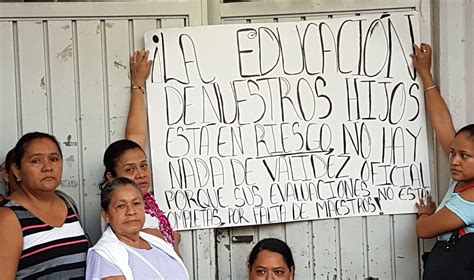 ¡LA EDUCACIÓN
DE NUESTROS HIJOS
ESTA EN RIESGO, NO HAY
NADA DE VALIDEZ OFICIAL
PORQUE SUS EVALUACIONES NO ESTÁN
COMPLETAS POR FALTA DE MAESTROS!